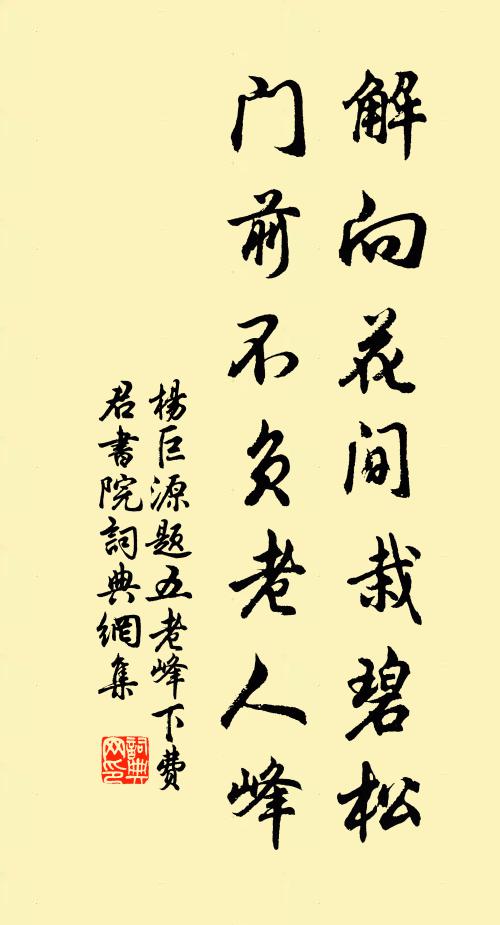 解向花间栽碧松
门前不负老人峰
杨巨源题五老峰下费
君书院詞典網集
詞典網印